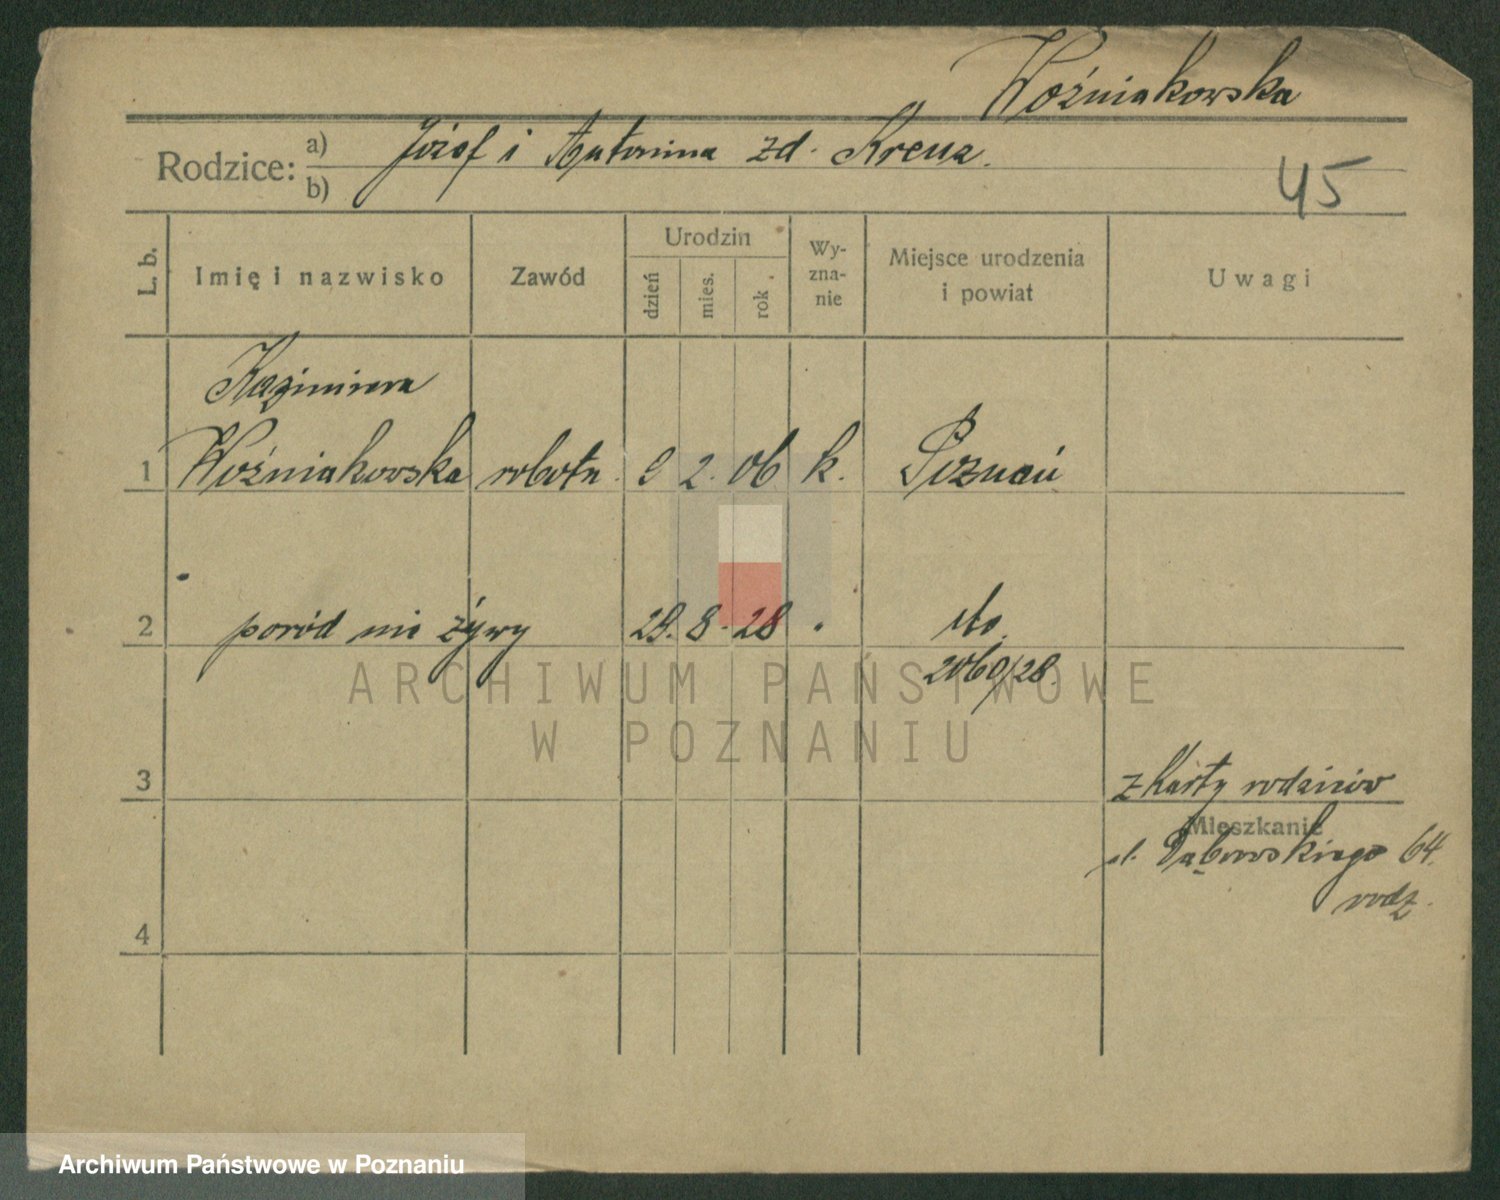 Woźniakowska
Rodzice: a) Józef i Antonina zd. Kreuz.
b)
45
L. b.
Imię i nazwisko
Zawód
Urodzin
dzień
mies.
rok
Wy-
zna-
nie
Miejsce urodzenia
i powiat
Uwagi
Kazimiera
1 Woźniakowska robotn. 2. 06 k. Poznań
2 poród nieżywy 29. 8. 28 dto.
2060/28.
ARCHIWUM PAŃSTWOWE
W POZNANIU
3
z Karty rodziców
Mieszkanie
ul. Dąbrowskiego 64.
rodz.
4
Archiwum Państwowe w Poznaniu